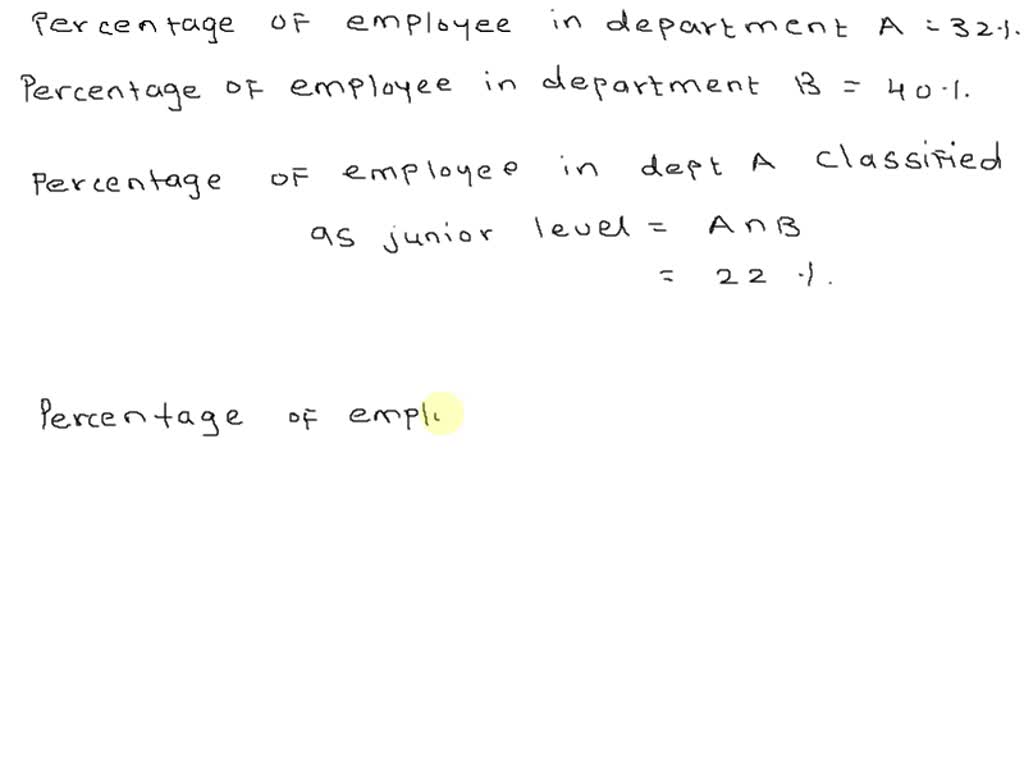 Percentage of employee in department A = 32%.
Percentage of employee in department B = 40%.
Percentage of employee in dept A classified
as junior level = A∩B
= 22%.
Percentage of empl